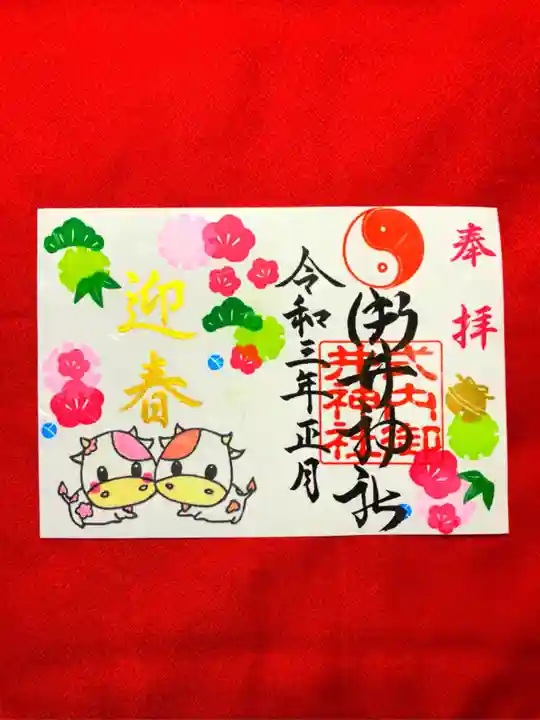 奉拝
御井神社
式内御井神社
令和三年正月
迎春